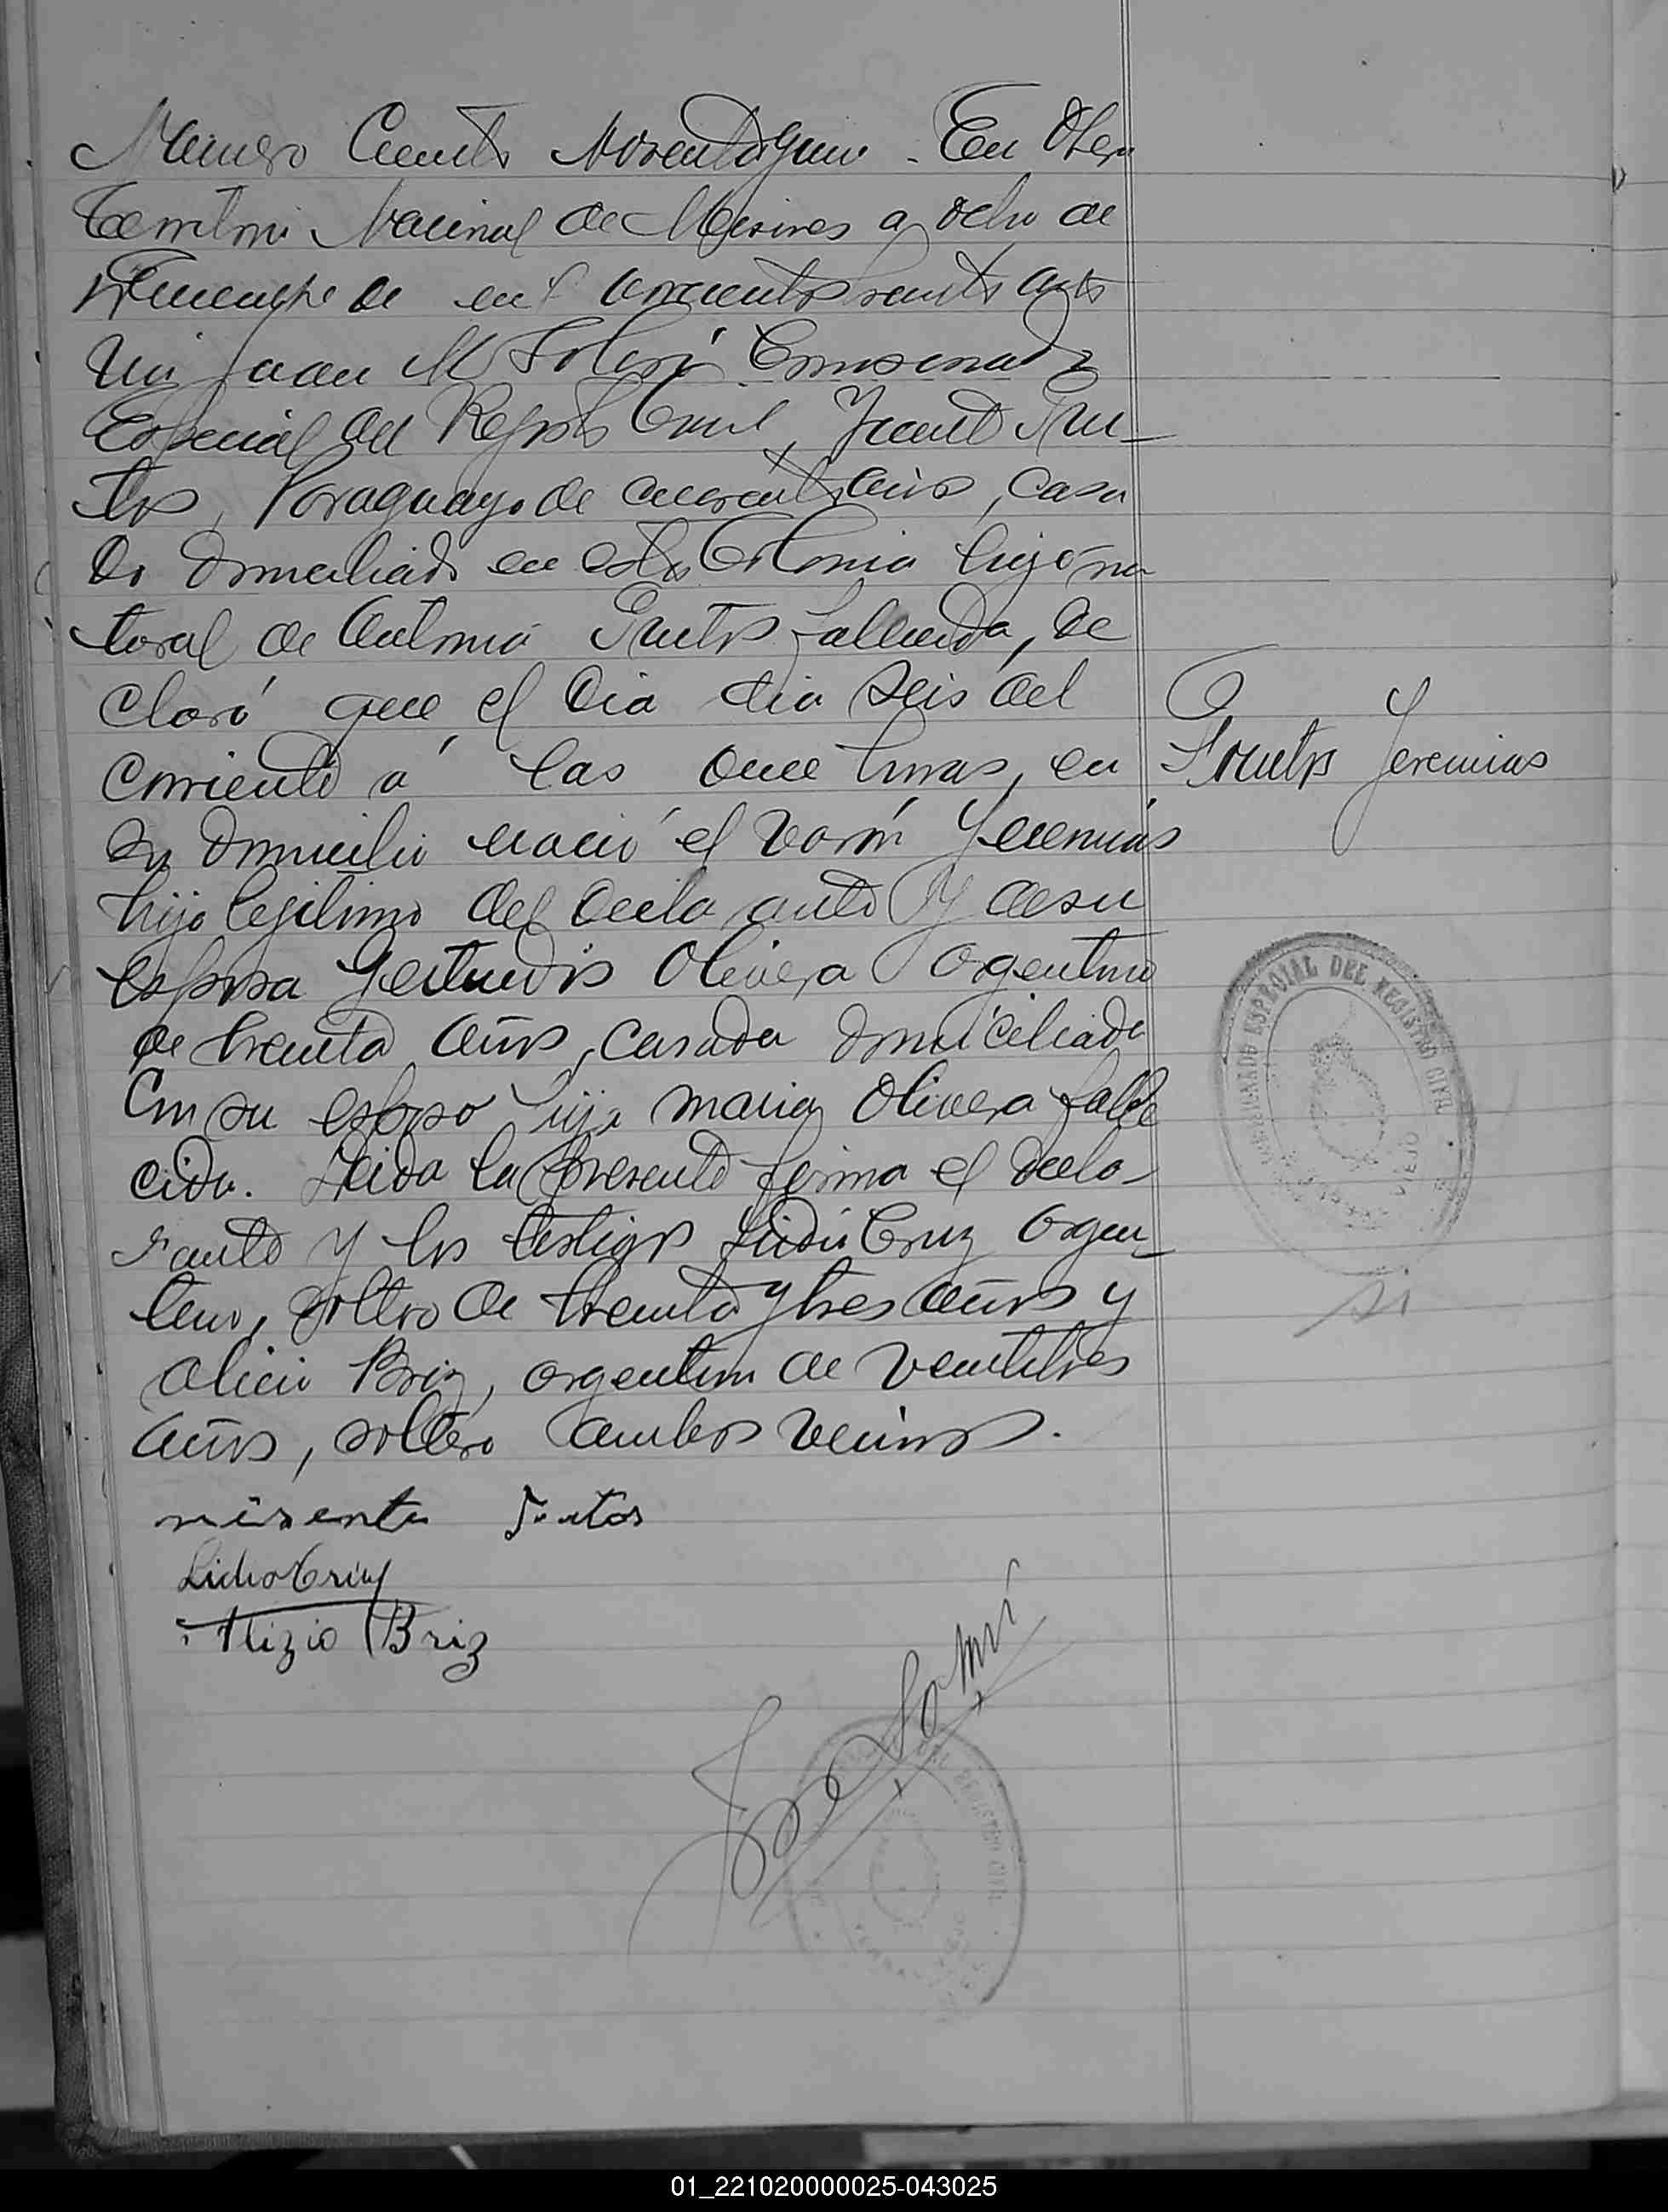 Numero Ciento Noventaiuno. En Ober
Territorio Nacional de Misiones a ocho de
de novecientos treinta ante
mi Juan M Comisionado
Especial del Registro Civil, Fru-
tos, Paraguayo de cuarenta años, casa
do domiciliado en esta Colonia hijo na
tural de Antonia Frutos fallecida, de
claró que el dia dia seis del
corriente á las once horas, en
su domicilio nació el varón Jeremias
hijo legitimo del decla ante y de su
esposa Gertrudis Olivera argentina
de treinta años, casada domiciliada
Con su esposo hija Maria Olivera falle
cida. Leida la presente firma el decla-
rante y los testigos Lidio Cruz argen-
tino, soltero de treinta y tres años y
Alicio Briz, argentino de veintitres
años, soltero ambos vecinos.
Frutos Jeremias
COMISIONADO ESPECIAL DEL REGISTRO CIVIL
VIEJO
Frutos
Lidio Cruz
Alizio Briz
REGISTRO CIVIL
01_221020000025-043025